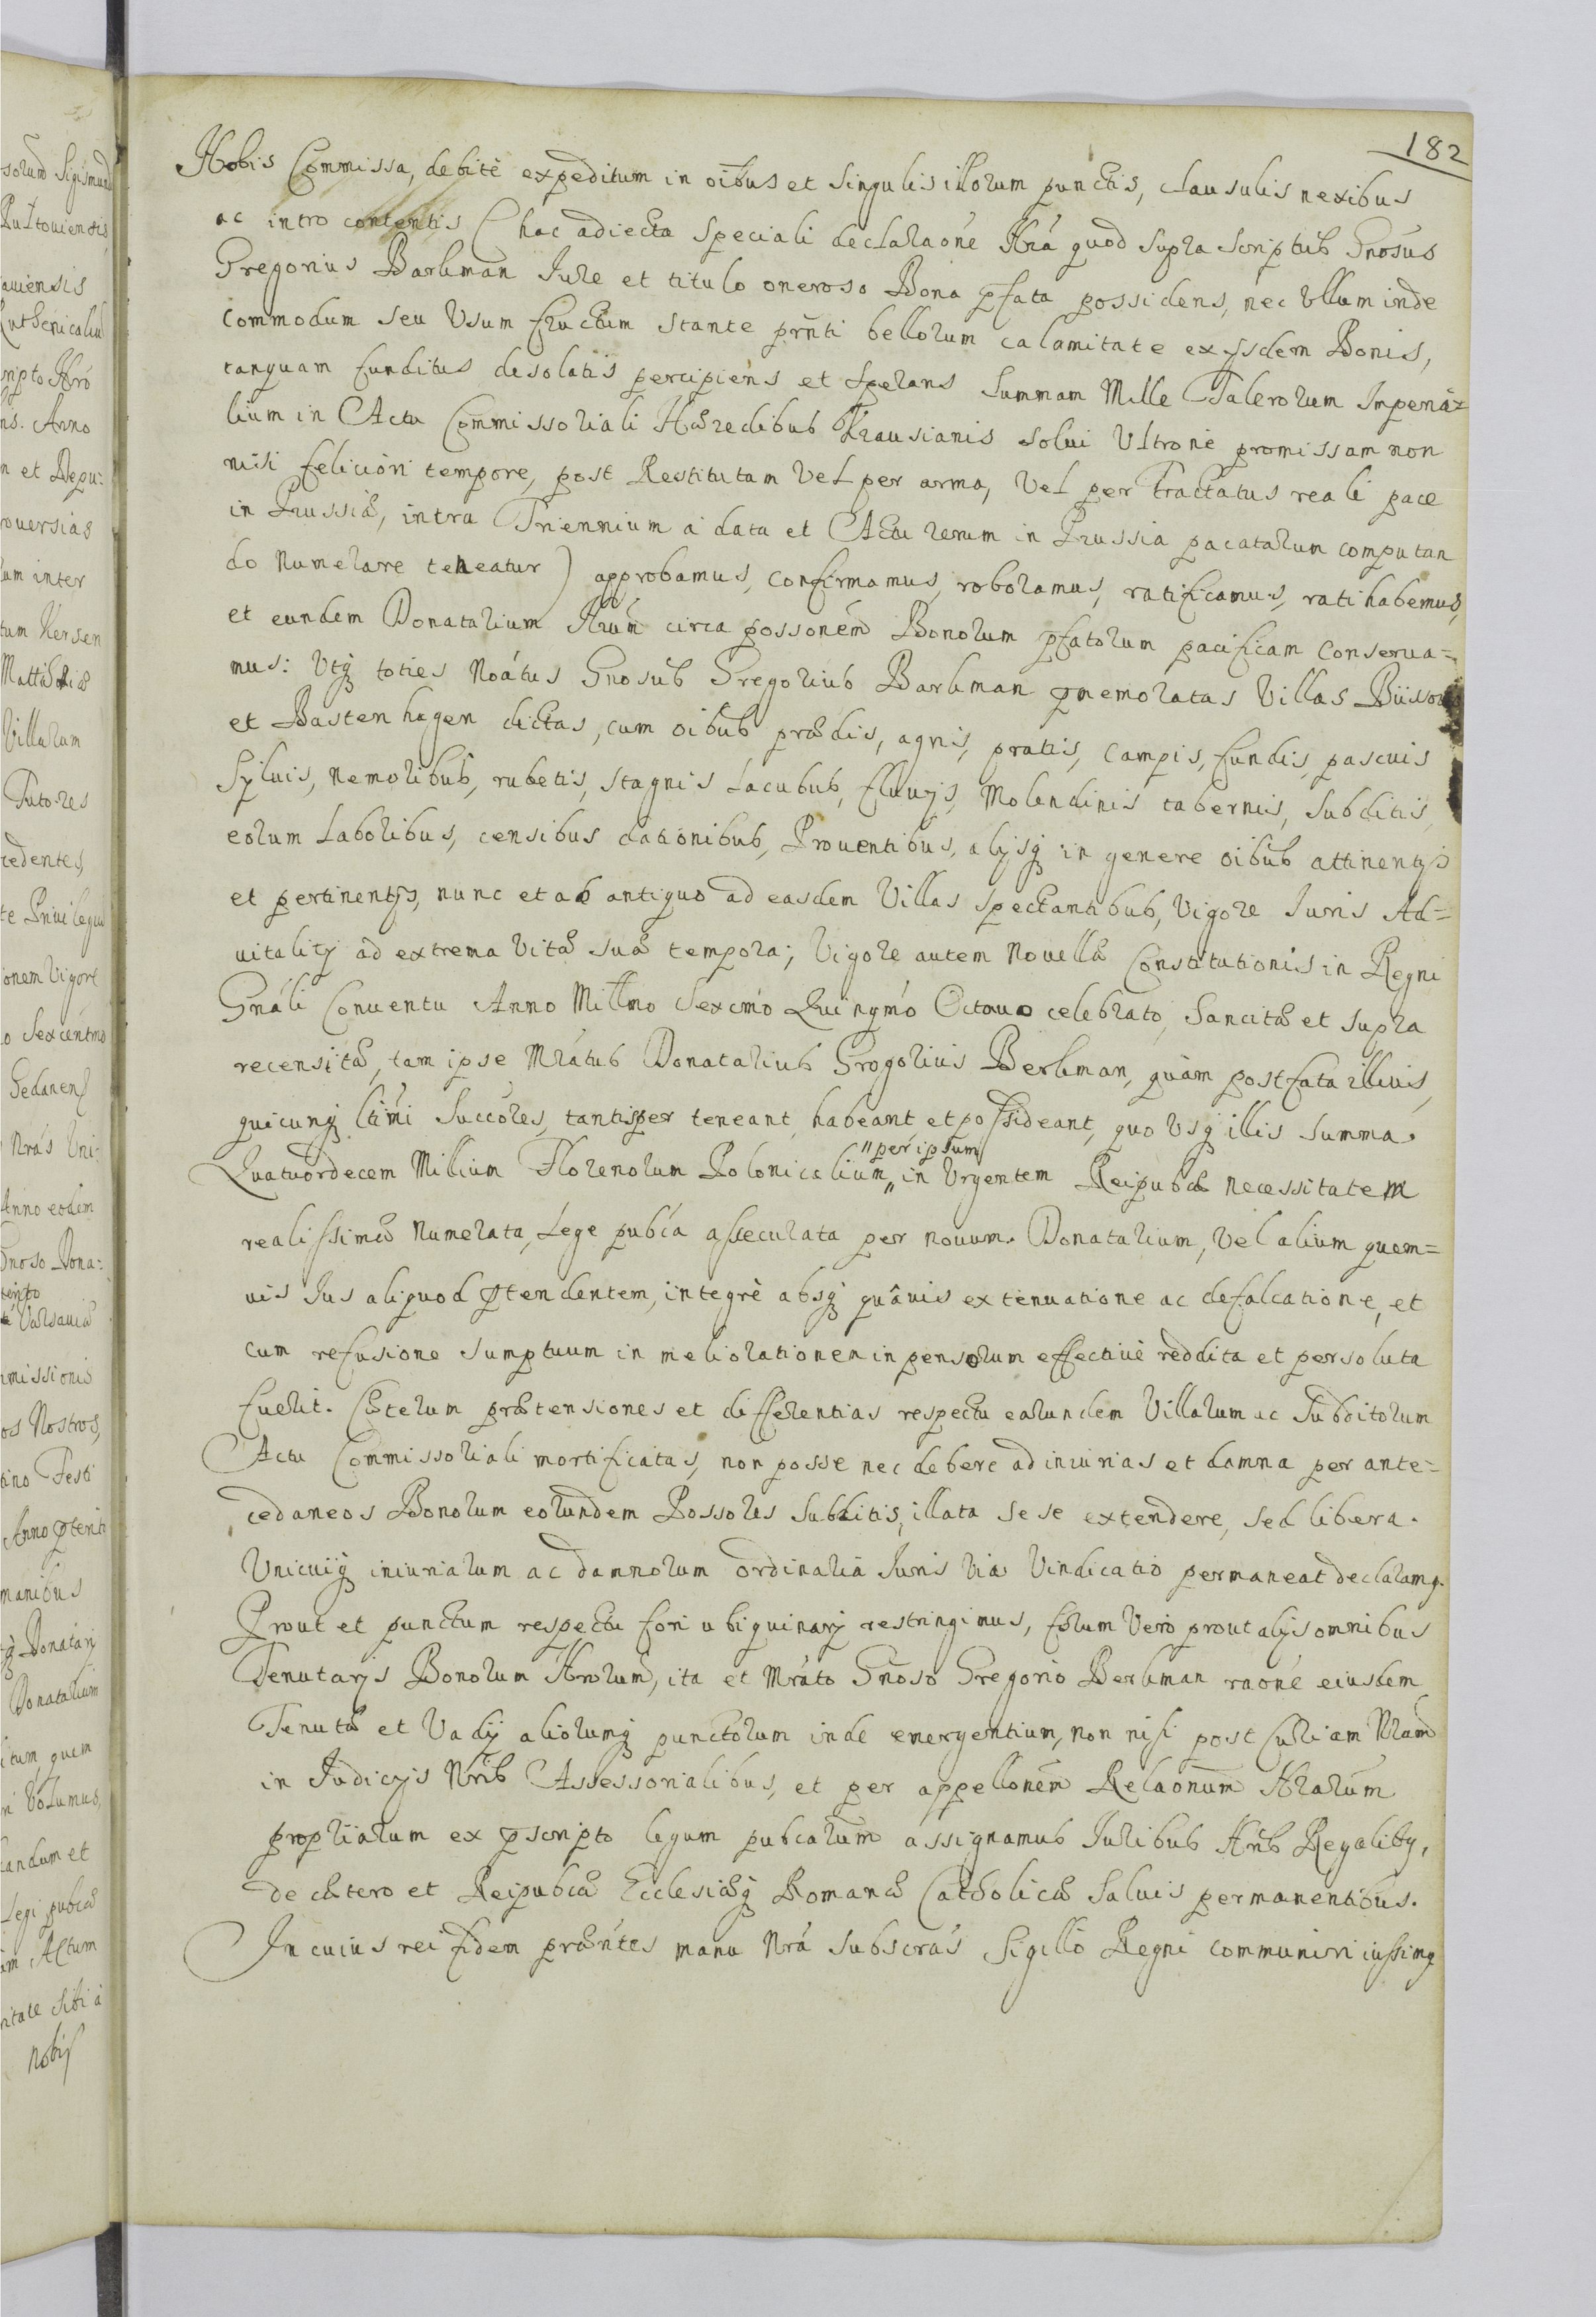 182
Nobis Commissa, debitè expeditum in oibus et singulis illorum punctis, clausulis nexibus
ac intro contentis (hac adiecta speciali declaraõne Nrá quod supra scriptus Gnosus
Gregorius Barkman Jure et titulo oneroso Bona pfata possidens, nec ullum inde
commodum seu Usum fructum stante prñti bellorum calamitate ex ijsdem Bonis,
tanquam funditus desolatis percipiens et sperans summam Mille Talerorum Imperia=
lium in Actu Commissoriali Hæredibus Krausianis solui Ultronè promissam non
nisi feliciori tempore, post Restitutam Vel per arma, Vel per Tractatus reali pace
in Prussia, intra Triennium a data et Actu rerum in Prussia pacatarum computan
do Numerare teneatur) approbamus, confirmamus, roboramus, ratificamus, ratihabemus,
et eundem Donatarium Nrum circa possonem Bonorum pfatorum pacificam conserua=
mus: Utq toties Noátus Gnosus Gregorius Barkman pmemoratas Villas
et Bastenhagen dictas, cum oibus prædis, agris, pratis, campis, fundis, pascuis
syluis, nemoribus, rubetis, stagnis Lacubus, fluuijs, Molendinis tabernis, subditis,
eorum Laboribus, censibus dationibus, Prouentibus, alijsq in genere oibus attinentijs
et pertinentijs, nunc et ab antiquo ad easdem Villas spectantibus, Vigore Juris Ad=
uitalitij ad extrema Vitæ suæ tempora; Vigore autem Nouellæ Constitutionis in Regni
Gnáli Conuentu Anno Millmo Sexcmo Quinqmo Octauo celebrato, Sancitæ et supra
recensitæ, tam ipse Mrátus Donatarius Grogorius Berkman, quàm post fata illius,
quicunq ltimi Succóres, tantisper teneant, habeant et possideant, quo Usq illis summa.
Quatuordecem Millium Florenorum Polonicalium "per ipsum in Urgentem Reipubcæ necessitatem
realissimæ Numerata, Lege pubca assecurata per nouum. Donatarium, Vel alium quem=
uis Jus aliquod ptendentem, integrè absq quâuis extenuatione ac defalcatione, et
cum refusione sumptuum in meliorationem inpensorum effectiuè reddita et persoluta
fuerit. Cæterum prætensiones et differentias respectu earundem Villarum ac Subditorum
Actu Commissoriali mortificatas, non posse nec debere ad iniurias et damna per ante=
cedaneos Bonorum eorundem Possores subditis, illata sese extendere, sed libera.
Unicuiq iniuriarum ac damnorum ordinaria Juris Via Vindicatio permaneat declaramq.
Prout et punctum respectu fori ubiquinarij restringimus, forum Vero prout alijs omnibus
Tenutarijs Bonorum Nrorum, ita et Mráto Gnoso Gregorio Berkman raone eiusdem
Tenutæ et Vadij aliorumq punctorum inde emergentium, non nisi post Curiam Nram
in Judicijs Nris Assessorialibus, et per appellonem Relaonum Nrarum
propriarum ex pscripto legum pubcarum assignamus Juribus Nris Regalibq,
de cætero et Reipubcæ Ecclesiæq Romanæ Catholicæ saluis permanentibus.
In cuius rei fidem præntes manu Nrá subscras Sigillo Regni communiri iussimq